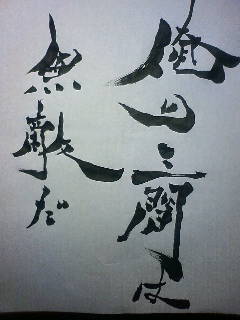 俺の三間は
無敵だ